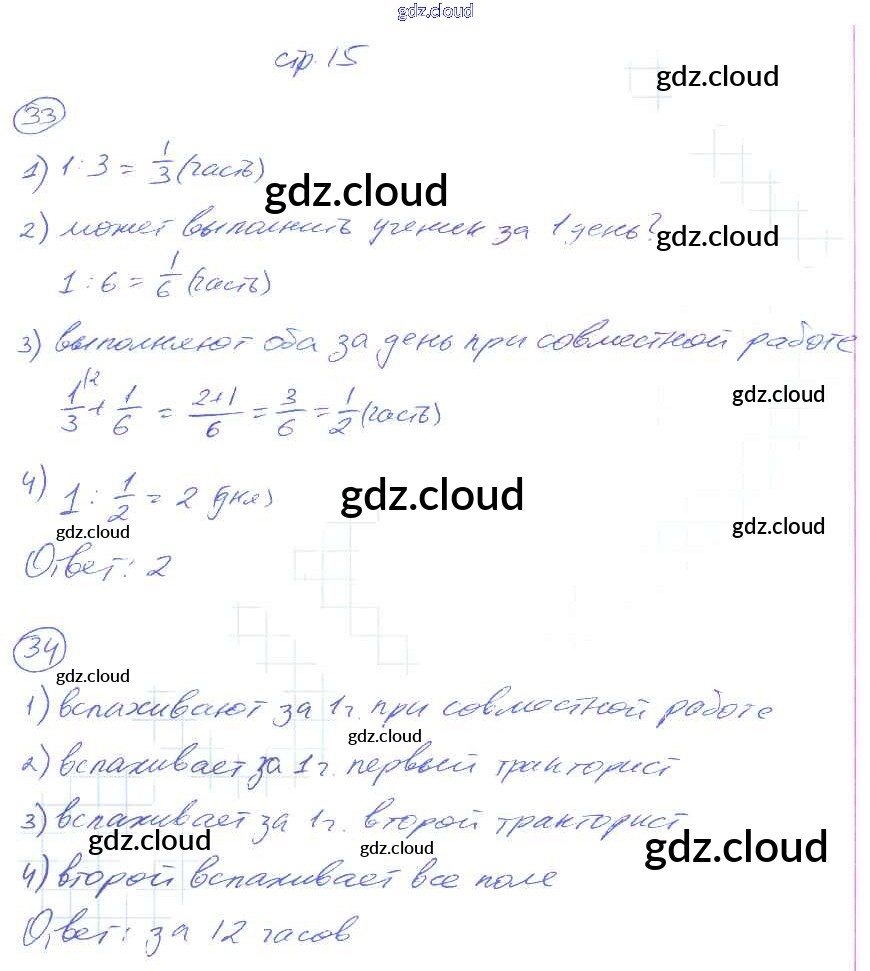 gdz.cloud
стр. 15
gdz.cloud
33
1) 1 : 3 = 1/3 (часть)
gdz.cloud
2) может выполнить ученик за 1 день?
gdz.cloud
1 : 6 = 1/6 (часть)
3) выполняют оба за день при совместной работе
1/3 |2 + 1/6 = 2+1/6 = 3/6 = 1/2 (часть)
gdz.cloud
4) 1 : 1/2 = 2 (дня)
gdz.cloud
gdz.cloud
gdz.cloud
Ответ: 2
34
gdz.cloud
1) вспахивают за 1 г. при совместной работе
gdz.cloud
2) вспахивает за 1 г. первый тракторист
3) вспахивает за 1 г. второй тракторист
gdz.cloud
gdz.cloud
gdz.cloud
4) второй вспахивает все поле
Ответ: за 12 часов